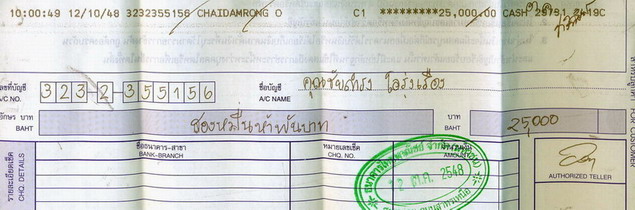 10:00:49 12/10/48 3232355156 CHAIDAMRONG O C1 *********25,000.00 CASH 25791 2419C
เลขที่บัญชี 323-2-355156 ชื่อบัญชี คุณชัยดำรง โอรุ่งเรือง
A/C NO. A/C NAME
อักษร บาท สองหมื่นห้าพันบาท บาท 25,000
BAHT BAHT
ชื่อธนาคาร-สาขา หมายเลขเช็ค
BANK-BRANCH CHQ. NO. AMOUNT
รายละเอียดเช็ค
CHQ. DETAILS
12 ต.ค. 2548
AUTHORIZED TELLER
CUSTOMER